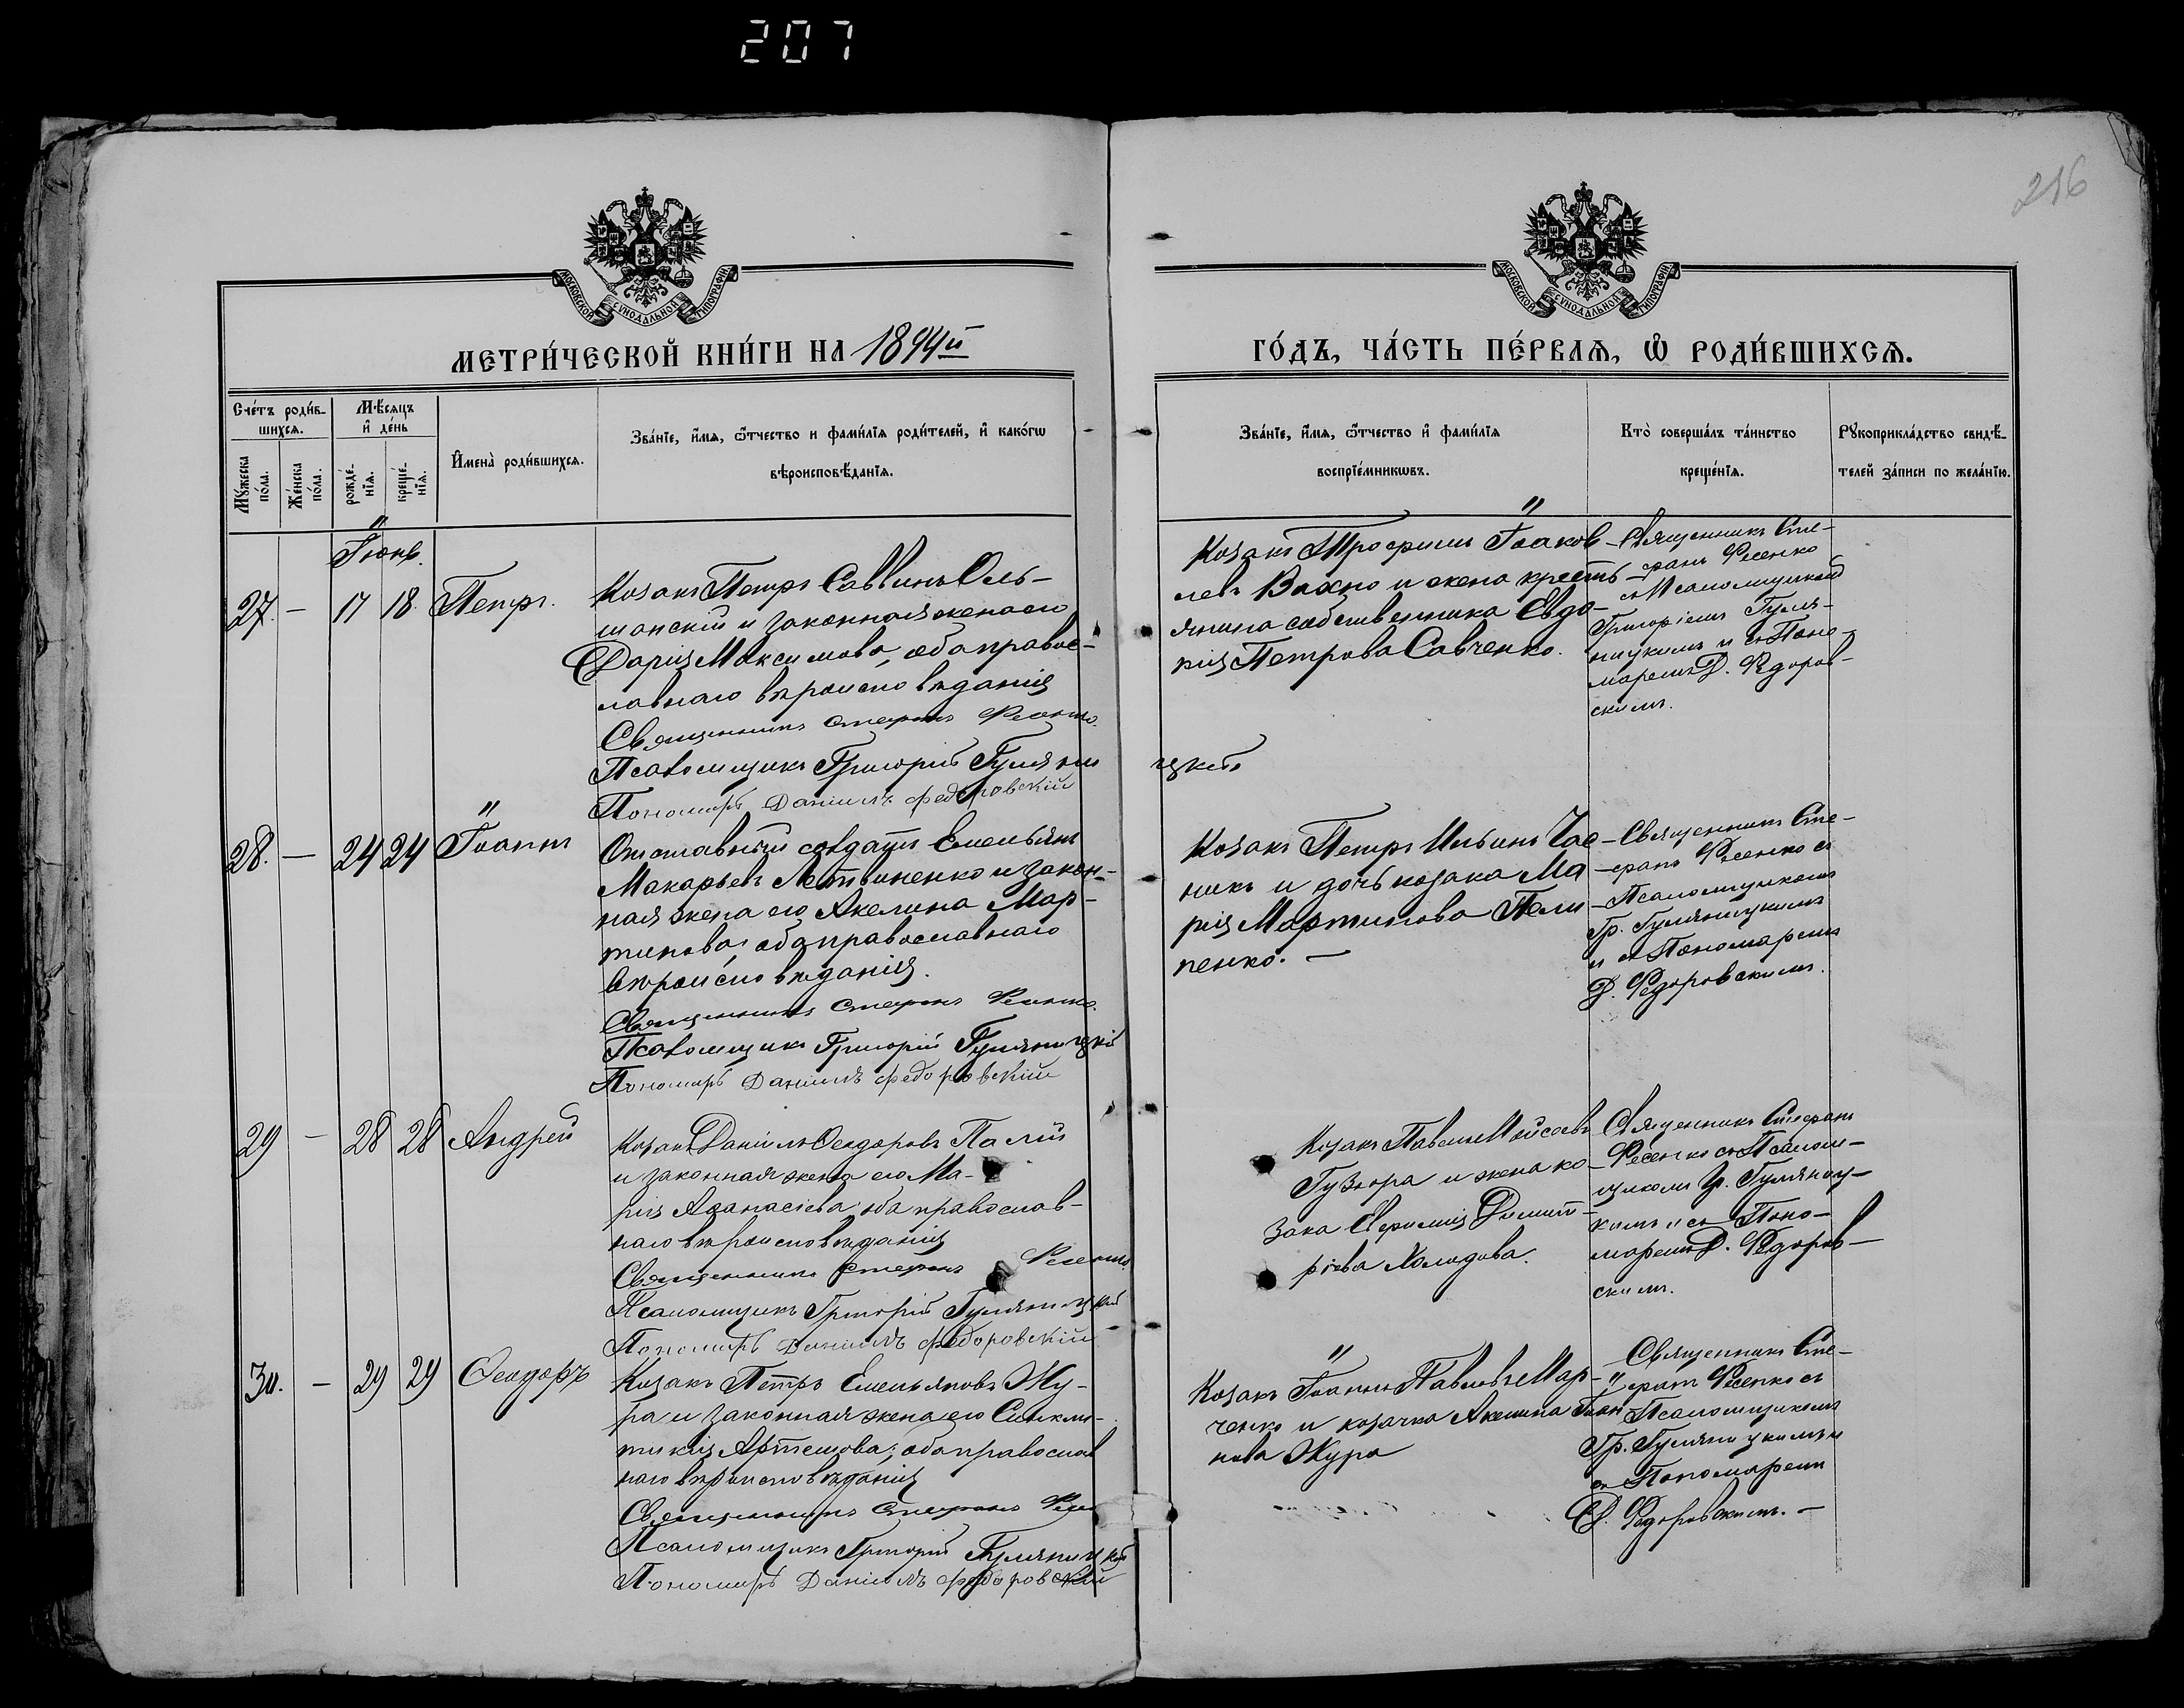 207
216
МОСКОВСКОЙ СѴНОДАЛЬНОЙ ТИПОГРАФІИ
МОСКОВСКОЙ СѴНОДАЛЬНОЙ ТИПОГРАФІИ
МЕТРИ́ЧЕСКОЙ КНИ́ГИ НА 1894й
ГО́ДЪ, ЧА́СТЬ ПЕ́РВАѦ, Ѡ҆ РОДИ́ВШИХСѦ.
Сче́тъ роди́в-
шихсѧ.
Мѣ́сѧцъ
и҆ де́нь
Мꙋ́жеска
по́ла.
Же́нска
по́ла.
рожде́-
нїѧ.
креще́-
нїѧ.
И҆мена̀ роди́вшихсѧ.
Зва́нїе, и҆́мѧ, ѻ҆́тчество и фами́лїѧ роди́телей, и҆ како́гѡ
вѣроисповѣ́данїѧ.
Зва́нїе, и҆́мѧ, ѻ҆́тчество и҆ фами́лїѧ
воспрїе́мникѡвъ.
Кто̀ соверша́лъ та́инство
креще́нїѧ.
Рꙋкоприкла́дство свидѣ́-
телей за́писи по жела́нїю.
Іюнь.
27. — 17 18. Петръ.
Козакъ Петръ Саввинъ Оль-
шанскій и законная жена его
Дарія Максимова, оба правос-
лавнаго вѣроисповѣданія
Священникъ Стефанъ Фесенко.
Псаломщикъ Григорій Гуляни
цкій
Пономарь Даніилъ Федоровскій
Козакъ Трофимъ Іаков-
левъ Вахно и жена кресть-
янина собственника Евдо-
кія Петрова Савченко.
Священникъ Сте-
фанъ Фесенко
съ Псаломщикомъ
Григоріемъ Гуля-
ницкимъ и съ Поно-
маремъ Д. Федоров-
скимъ.
28. — 24 24 Іоаннъ
Отставный солдатъ Емельянъ
Макарьевъ Литвиненко и закон-
ная жена его Акелина Мар-
тинова, оба православнаго
вѣроисповѣданія.
Священникъ Стефанъ Фесенко.
Псаломщикъ Григорій Гуляницкій
Пономарь Даніилъ Федоровскій
Козакъ Петръ Ильинъ Час-
никъ и дочь козака Ма
рія Мартинова Пели
пенко. —
Священникъ Сте-
фанъ Фесенко съ
Псаломщикомъ
Гр. Гуляницкимъ
и съ Пономаремъ
Д. Федоровскимъ.
29 — 28 28 Андрей
Козакъ Даніилъ Ѳеодоровъ Палій
и законная жена его Ма-
рія Аѳанасіева, оба православ-
наго вѣроисповѣданія
Священникъ Стефанъ Фесенко.
Псаломщикъ Григорій Гуляницкій
Пономарь Даніилъ Федоровскій
Козакъ Павелъ Мойсеевъ
и жена ко-
зака Евфимія Димит-
ріева Холодова.
Священникъ Стефанъ
Фесенко съ Псалом-
щикомъ Гр. Гуляниц-
кимъ и съ Поно-
маремъ Д. Федоров-
скимъ.
30. — 29 29 Ѳеодоръ
Козакъ Петръ Емельяновъ Жу-
ра и законная жена его Синкли-
тикія Артемова; оба православ
наго вѣроисповѣданія
Священникъ Стефанъ Фесен
Псаломщикъ Григорій Гуляницкій
Пономарь Даніилъ Федоровскій
Козакъ Іоаннъ Павловъ Мар-
ченко и козачка Акелина Іоан-
нова Жура
Священникъ Сте-
фанъ Фесенко съ
Псаломщикомъ
Гр. Гуляницкимъ и
съ Пономаремъ
Д. Федоровскимъ. —